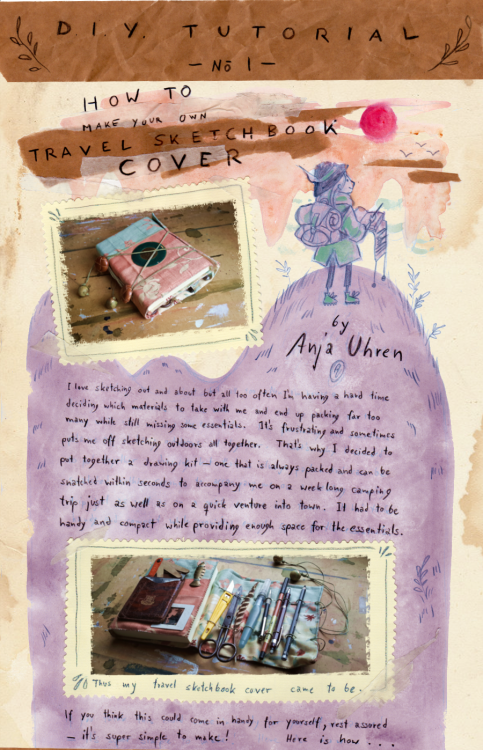 D.I.Y. TUTORIAL
– No 1 –
HOW TO
MAKE YOUR OWN
TRAVEL SKETCHBOOK
COVER
by
Anja Uhren
I love sketching out and about but all too often I'm having a hard time
deciding which materials to take with me and end up packing far too
many while still missing some essentials. It's frustrating and sometimes
puts me off sketching outdoors all together. That's why I decided to
put together a drawing kit – one that is always packed and can be
snatched within seconds to accompany me on a week long camping
trip just as well as on a quick venture into town. It had to be
handy and compact while providing enough space for the essentials.
Thus my travel sketchbook cover came to be.
If you think this could come in handy for yourself, rest assured
– it's super simple to make! Here is how ....